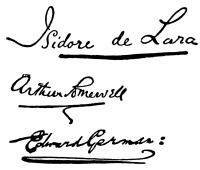 Isidore de Lara
Arthur Somervell
Edward German: